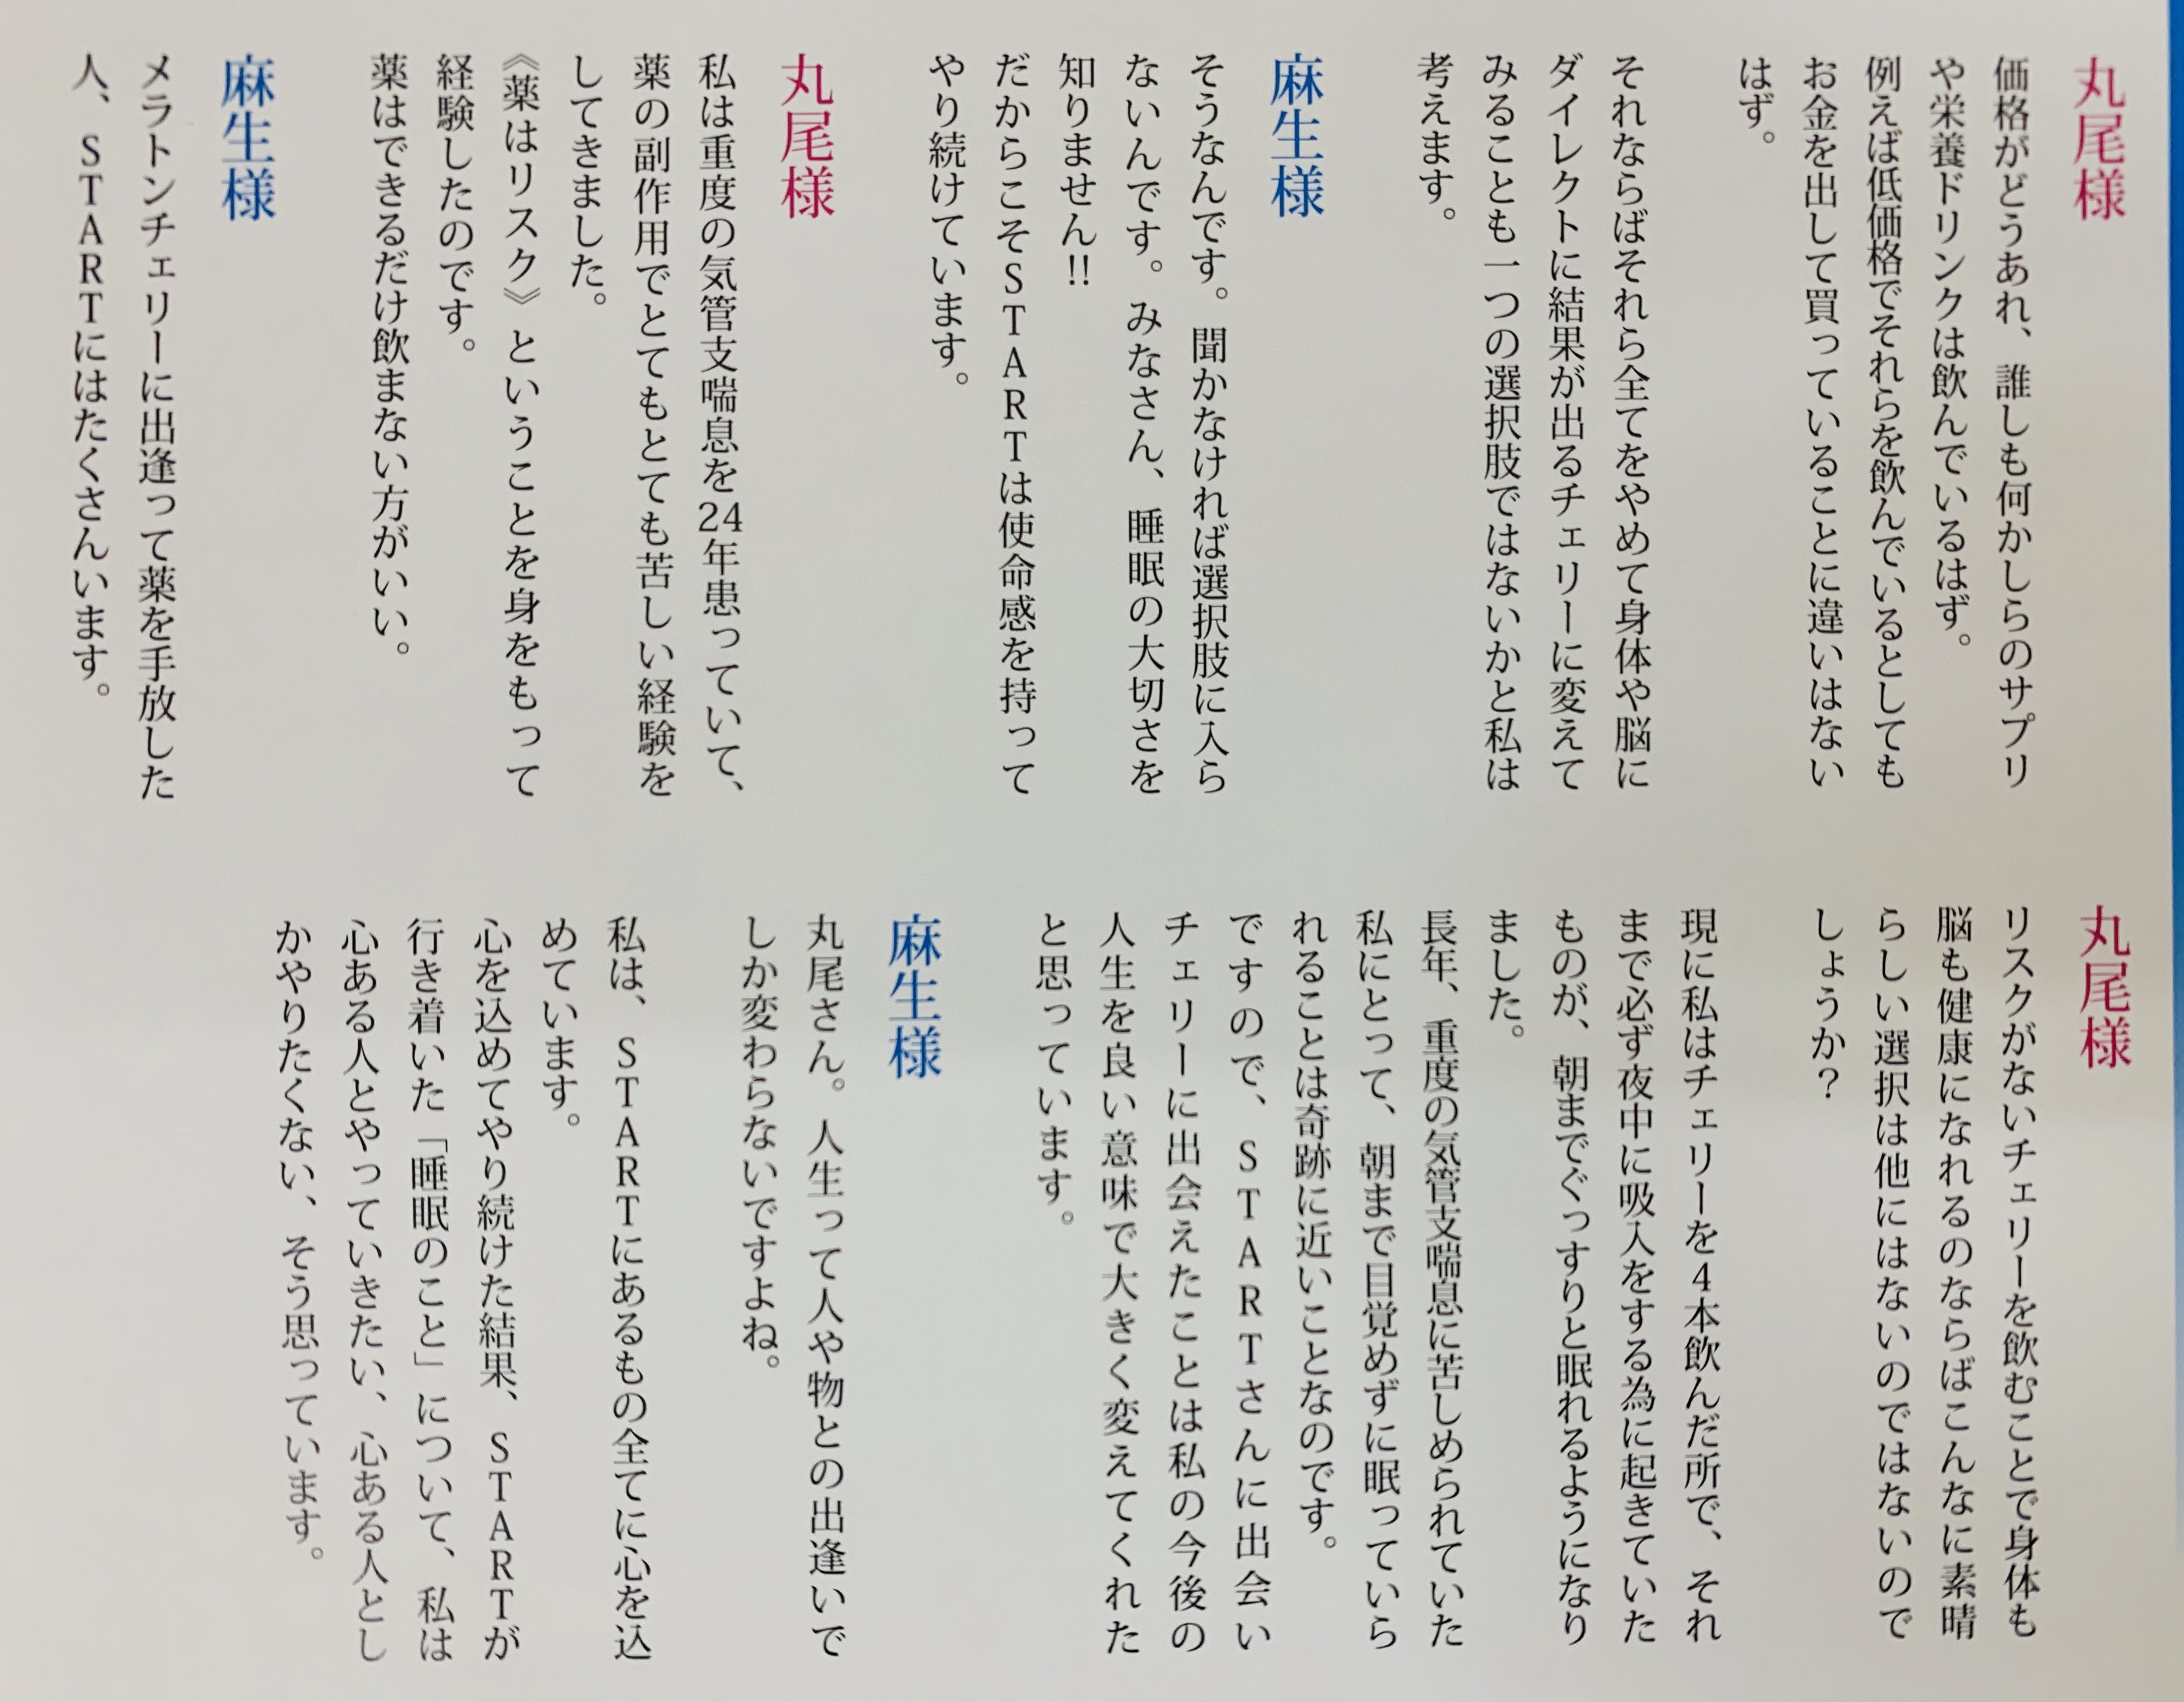 丸尾様
価格がどうあれ、誰しも何かしらのサプリ
や栄養ドリンクは飲んでいるはず。
例えば低価格でそれらを飲んでいるとしても
お金を出して買っていることに違いはない
はず。
それならばそれら全てをやめて身体や脳に
ダイレクトに結果が出るチェリーに変えて
みることも一つの選択肢ではないかと私は
考えます。
麻生様
そうなんです。聞かなければ選択肢に入ら
ないんです。みなさん、睡眠の大切さを
知りません!!
だからこそSTARTは使命感を持って
やり続けています。
丸尾様
私は重度の気管支喘息を24年患っていて、
薬の副作用でとてもとても苦しい経験を
してきました。
《薬はリスク》ということを身をもって
経験したのです。
薬はできるだけ飲まない方がいい。
麻生様
メラトンチェリーに出逢って薬を手放した
人、STARTにはたくさんいます。
丸尾様
リスクがないチェリーを飲むことで身体も
脳も健康になれるのならばこんなに素晴
らしい選択は他にはないのではないので
しょうか？
現に私はチェリーを4本飲んだ所で、それ
まで必ず夜中に吸入をする為に起きていた
ものが、朝までぐっすりと眠れるようになり
ました。
長年、重度の気管支喘息に苦しめられていた
私にとって、朝まで目覚めずに眠っていら
れることは奇跡に近いことなのです。
ですので、STARTさんに出会い
チェリーに出会えたことは私の今後の
人生を良い意味で大きく変えてくれた
と思っています。
麻生様
丸尾さん。人生って人や物との出逢いで
しか変わらないですよね。
私は、STARTにあるもの全てに心を込
めています。
心を込めてやり続けた結果、STARTが
行き着いた「睡眠のこと」について、私は
心ある人とやっていきたい、心ある人とし
かやりたくない、そう思っています。